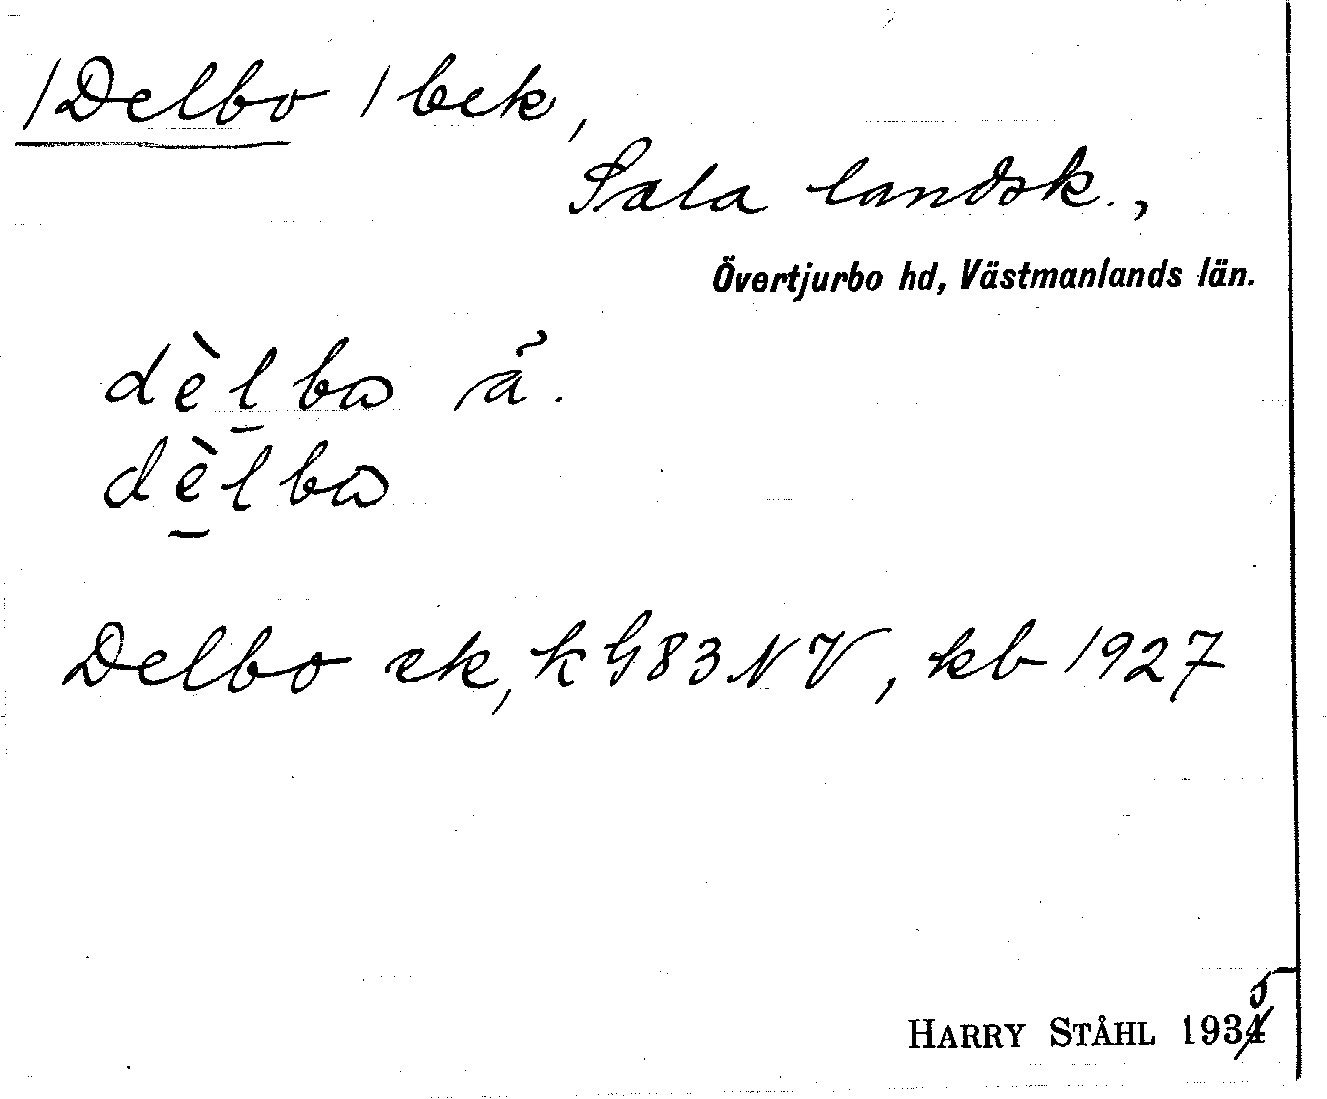 /Delbo/ bek,
Sala landsk.,
Övertjurbo hd, Västmanlands län.
dèl̠bω å̃.
dè̠lbω
Delbo ek, k G 83 NV, kb 1927
HARRY STÅHL 1935